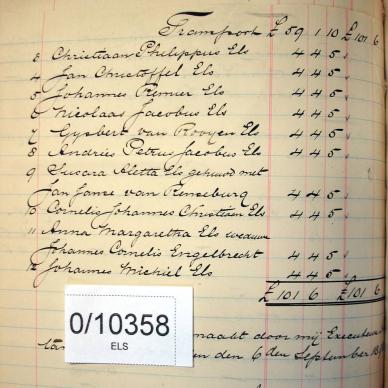 Transport £ 59 1 10 £ 101 6
3 Christiaan Philippus Els 4 4 5
4 Jan Christoffel Els 4 4 5
5 Johannes Renier Els 4 4 5
6 Nicolaas Jacobus Els 4 4 5
7 Gysbert van Rooyen Els 4 4 5
8 Andries Petrus Jacobus Els 4 4 5
9 Susara Aletta Els gehuwd met
Jan Janse van Rensburg 4 4 5
10 Cornelis Johannes Christiaan Els 4 4 5
11 Anna Margaretha Els weduwe
Johannes Cornelis Engelbrecht 4 4 5
12 Johannes Michiel Els 4 4 5
£ 101 6 £ 101 6
0/10358
ELS
maakt door mij Executeur
den 6 den September